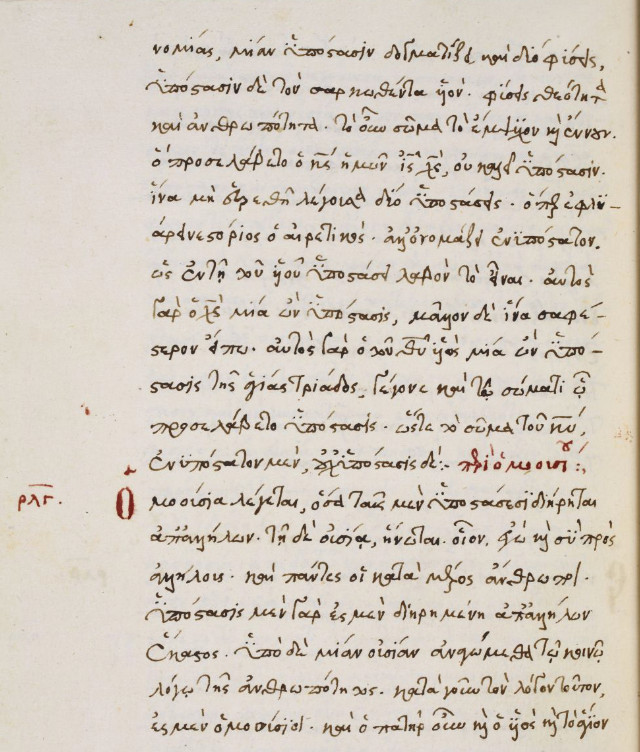 νομίας, μίαν ὑπόστασιν δογματίζει καὶ δύο φύσεις,
ὑπόστασιν δὲ τὸν σαρκωθέντα υἱόν. φύσεις θεότητα
καὶ ἀνθρωπότητα. τὸ οὖν σῶμα τὸ ἔμψυχον καὶ ἔννουν.
ὃ προσελάβετο ὁ κς ἡμῶν ις χς, οὐ καλεῖ ὑπόστασιν.
ἵνα μὴ εὑρεθῆ λέγουσα δύο ὑποστάσεις. ὅπερ ἐφλυ-
άρει νεστόριος ὁ αἱρετικὸς. ἀλλ' ὀνομάζει ἐνυπόστατον.
ὡς ἐν τῆ τοῦ υἱοῦ ὑποστάσει λαβὸν τὸ εἶναι. αὐτὸς
γὰρ ὁ χς μία ὢν ὑπόστασις, μᾶλλον δὲ ἵνα σαφέ-
στερον εἴπω. αὐτὸς γὰρ ὁ τοῦ θυ υἱὸς μία ὢν ὑπό-
στασις τῆς ἁγίας τριάδος, γέγονε καὶ τῶ σώματι ᾧ
προσελάβετο ὑπόστασις. ὥστε τὸ σῶμα τοῦ κυ,
ἐνυπόστατον μὲν, οὐχ ὑπόστασις δέ:- περὶ ὁμοουσίου:
ρλγ. Ὁμοούσια λέγεται, ὅσα ταῖς μὲν ὑποστάσεσι διήρηται
ἀπ' ἀλλήλων. τῆ δὲ οὐσίᾳ, ἥνωται. οἷον. ἐγὼ καὶ σὺ πρὸς
ἀλλήλους. καὶ πάντες οἱ κατὰ μέρος ἄνθρωποι.
ὑπόστασις μὲν γὰρ ἐσμὲν διῃρημένη ἀπ' ἀλλήλων
ἕκαστος. ὑπὸ δὲ μίαν οὐσίαν ἀναγόμεθα τῷ κοινῷ
λόγω τῆς ἀνθρωπότητος. κατὰ γοῦν τὸν λόγον τοῦτον,
ἐσμὲν ὁμοούσιοι. καὶ ὁ πατὴρ οὖν καὶ ὁ υἱὸς καὶ τὸ ἅγιον